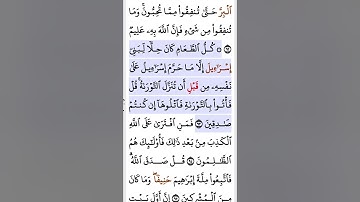 ٱلۡبِرَّ حَتَّىٰ تُنفِقُوا۟ مِمَّا تُحِبُّونَۚ وَمَا
تُنفِقُوا۟ مِن شَىۡءٍ فَإِنَّ ٱللَّهَ بِهِۦ عَلِيمٌ
۝ ۞ كُلُّ ٱلطَّعَامِ كَانَ حِلًّا لِّبَنِىٓ
إِسۡرَٰٓءِيلَ إِلَّا مَا حَرَّمَ إِسۡرَٰٓءِيلُ عَلَىٰ
نَفۡسِهِۦ مِن قَبۡلِ أَن تُنَزَّلَ ٱلتَّوۡرَىٰةُۚ قُلۡ
فَأۡتُوا۟ بِٱلتَّوۡرَىٰةِ فَٱتۡلُوهَآ إِن كُنتُمۡ
صَٰدِقِينَ ۝ فَمَنِ ٱفۡتَرَىٰ عَلَى ٱللَّهِ
ٱلۡكَذِبَ مِنۢ بَعۡدِ ذَٰلِكَ فَأُو۟لَٰٓئِكَ هُمُ
ٱلظَّٰلِمُونَ ۝ قُلۡ صَدَقَ ٱللَّهُۗ
فَٱتَّبِعُوا۟ مِلَّةَ إِبۡرَٰهِيمَ حَنِيفًاۖ وَمَا كَانَ
مِنَ ٱلۡمُشۡرِكِينَ ۝ إِنَّ أَوَّلَ بَيۡتٍ